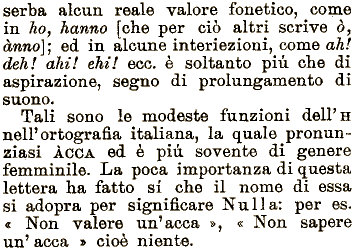 serba alcun reale valore fonetico, come
in ho, hanno [che per ciò altri scrive ò,
ànno]; ed in alcune interiezioni, come ah!
deh! ahi! ehi! ecc. è soltanto piú che di
aspirazione, segno di prolungamento di
suono.
Tali sono le modeste funzioni dell'H
nell'ortografia italiana, la quale pronun-
ziasi ÀCCA ed è piú sovente di genere
femminile. La poca importanza di questa
lettera ha fatto sí che il nome di essa
si adopra per significare Nulla: per es.
« Non valere un'acca », « Non sapere
un' acca » cioè niente.